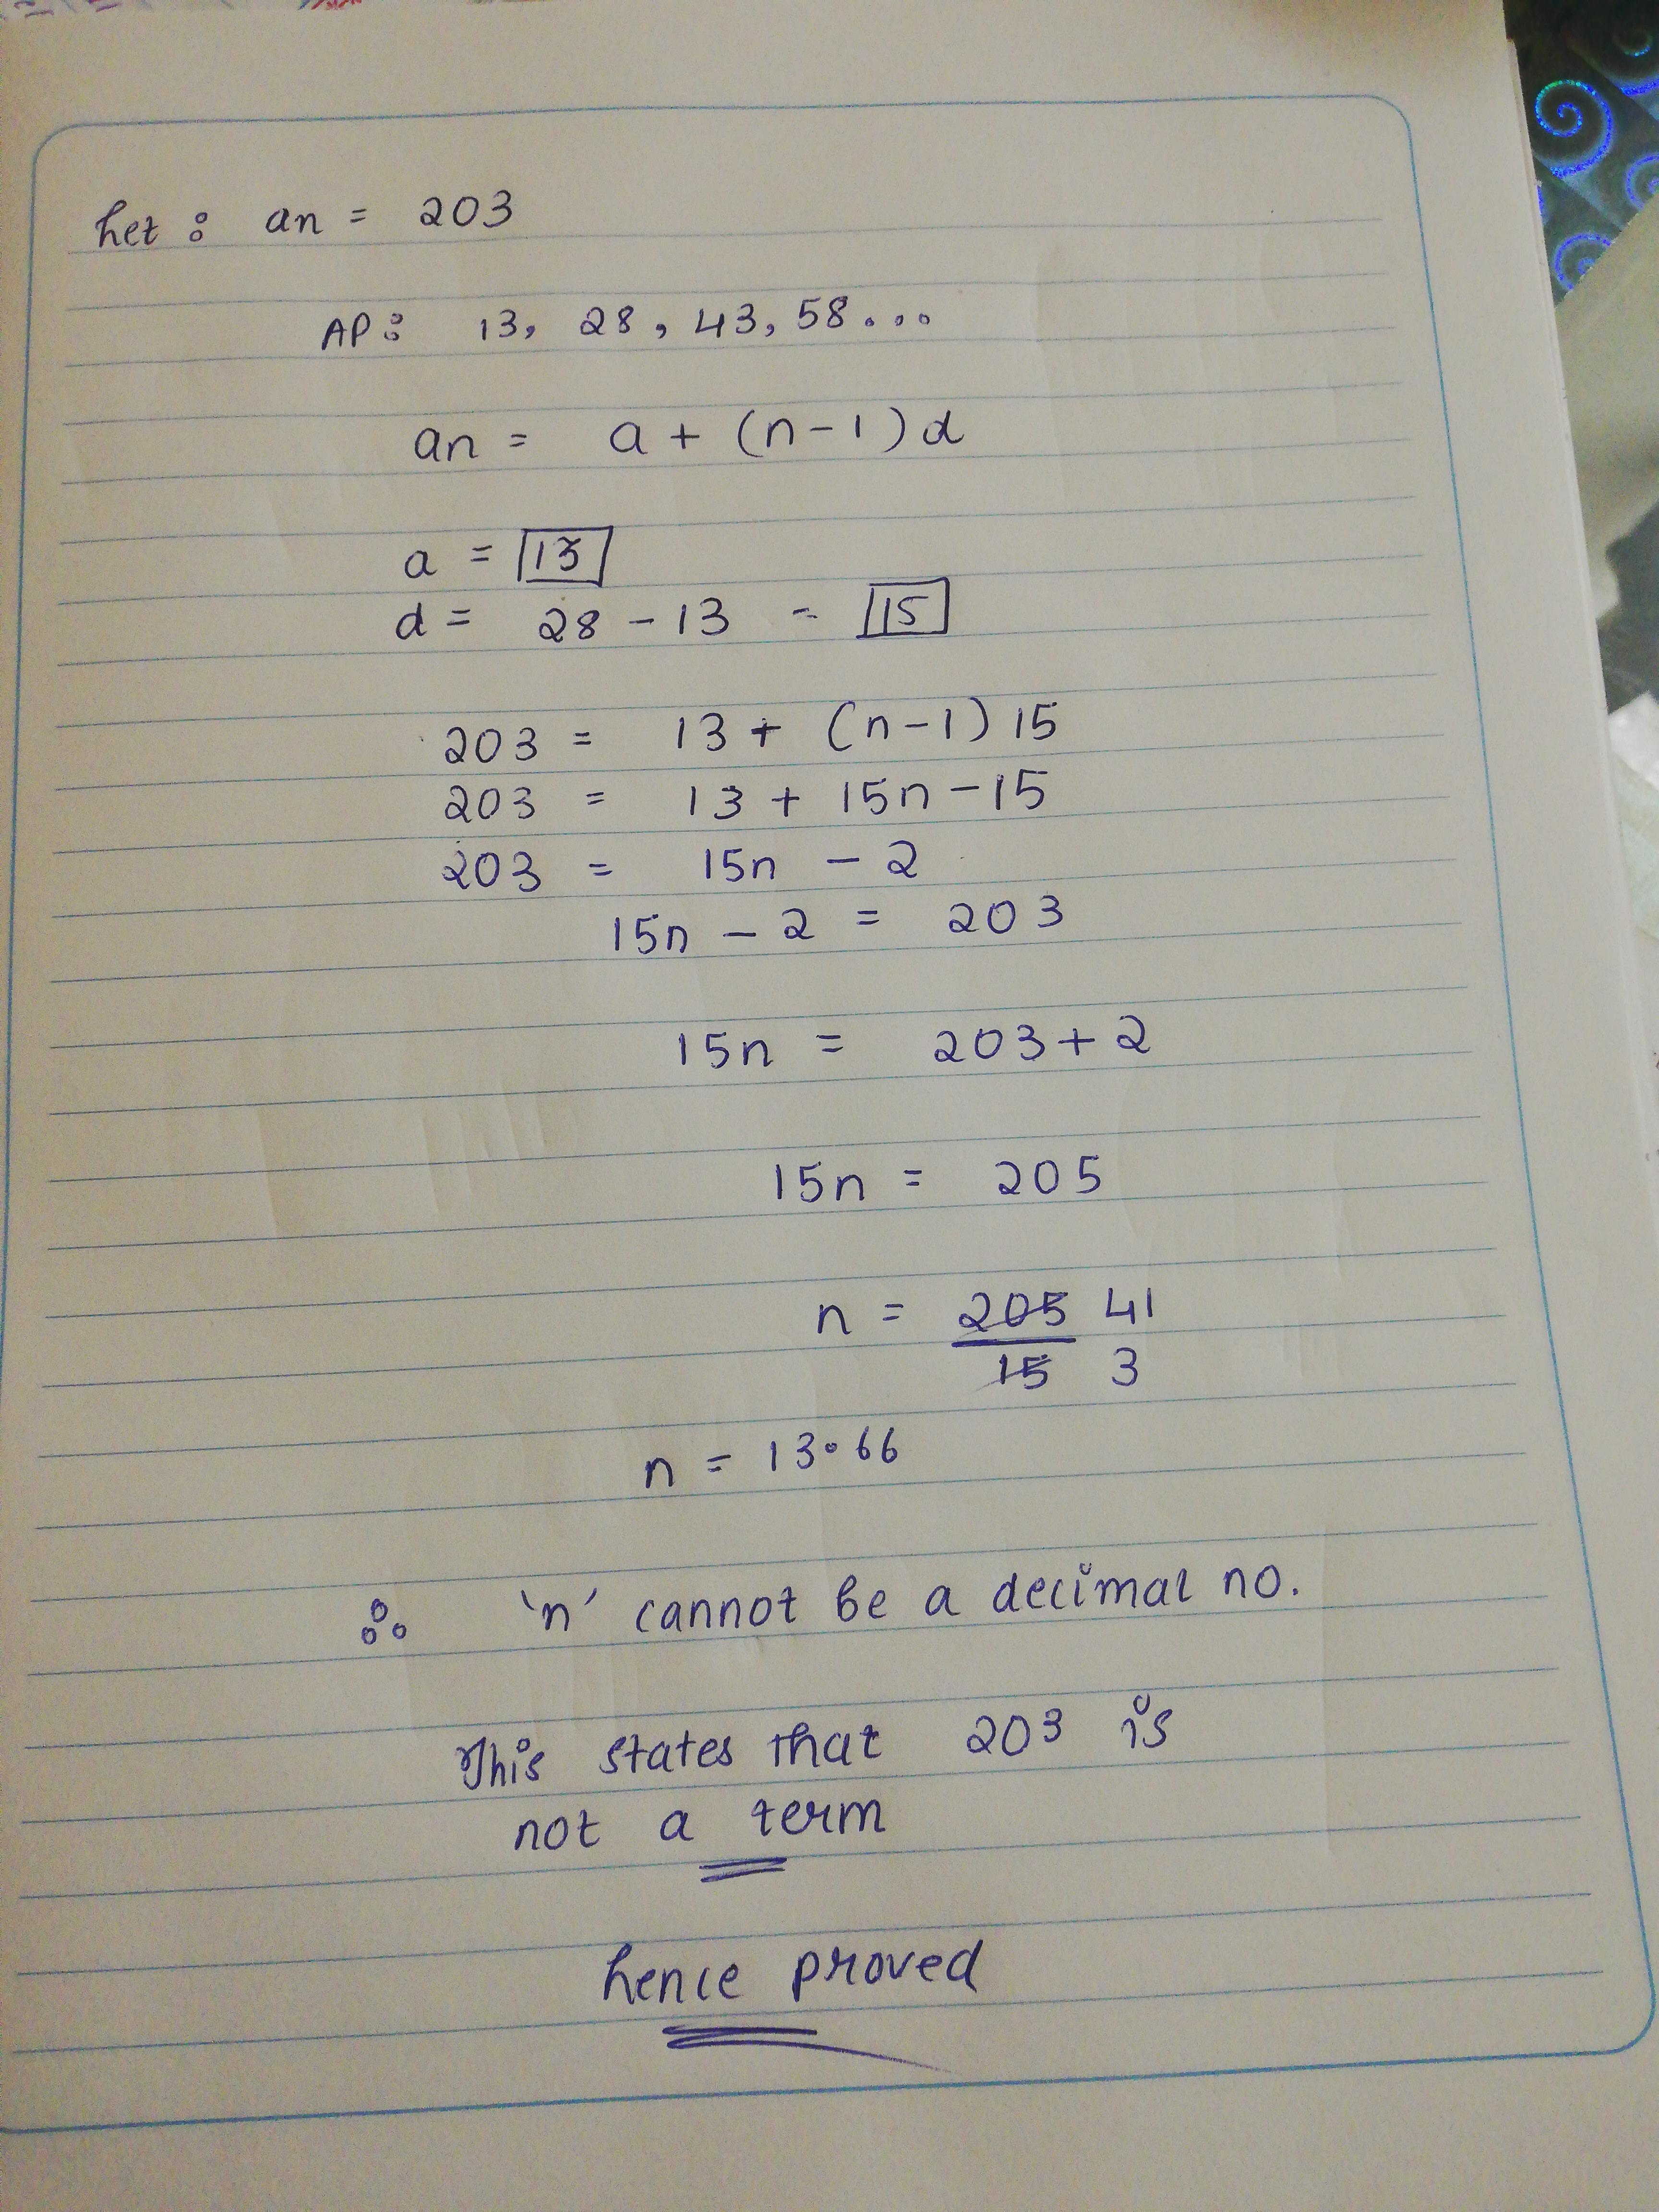 Let : an = 203
AP : 13, 28, 43, 58...
an = a + (n-1) d
a = 13
d = 28 - 13 = 15
203 = 13 + (n-1) 15
203 = 13 + 15n - 15
203 = 15n - 2
15n - 2 = 203
15n = 203 + 2
15n = 205
n = 205 41
15 3
n = 13.66
∴ 'n' cannot be a decimal no.
This states that 203 is
not a term
hence proved